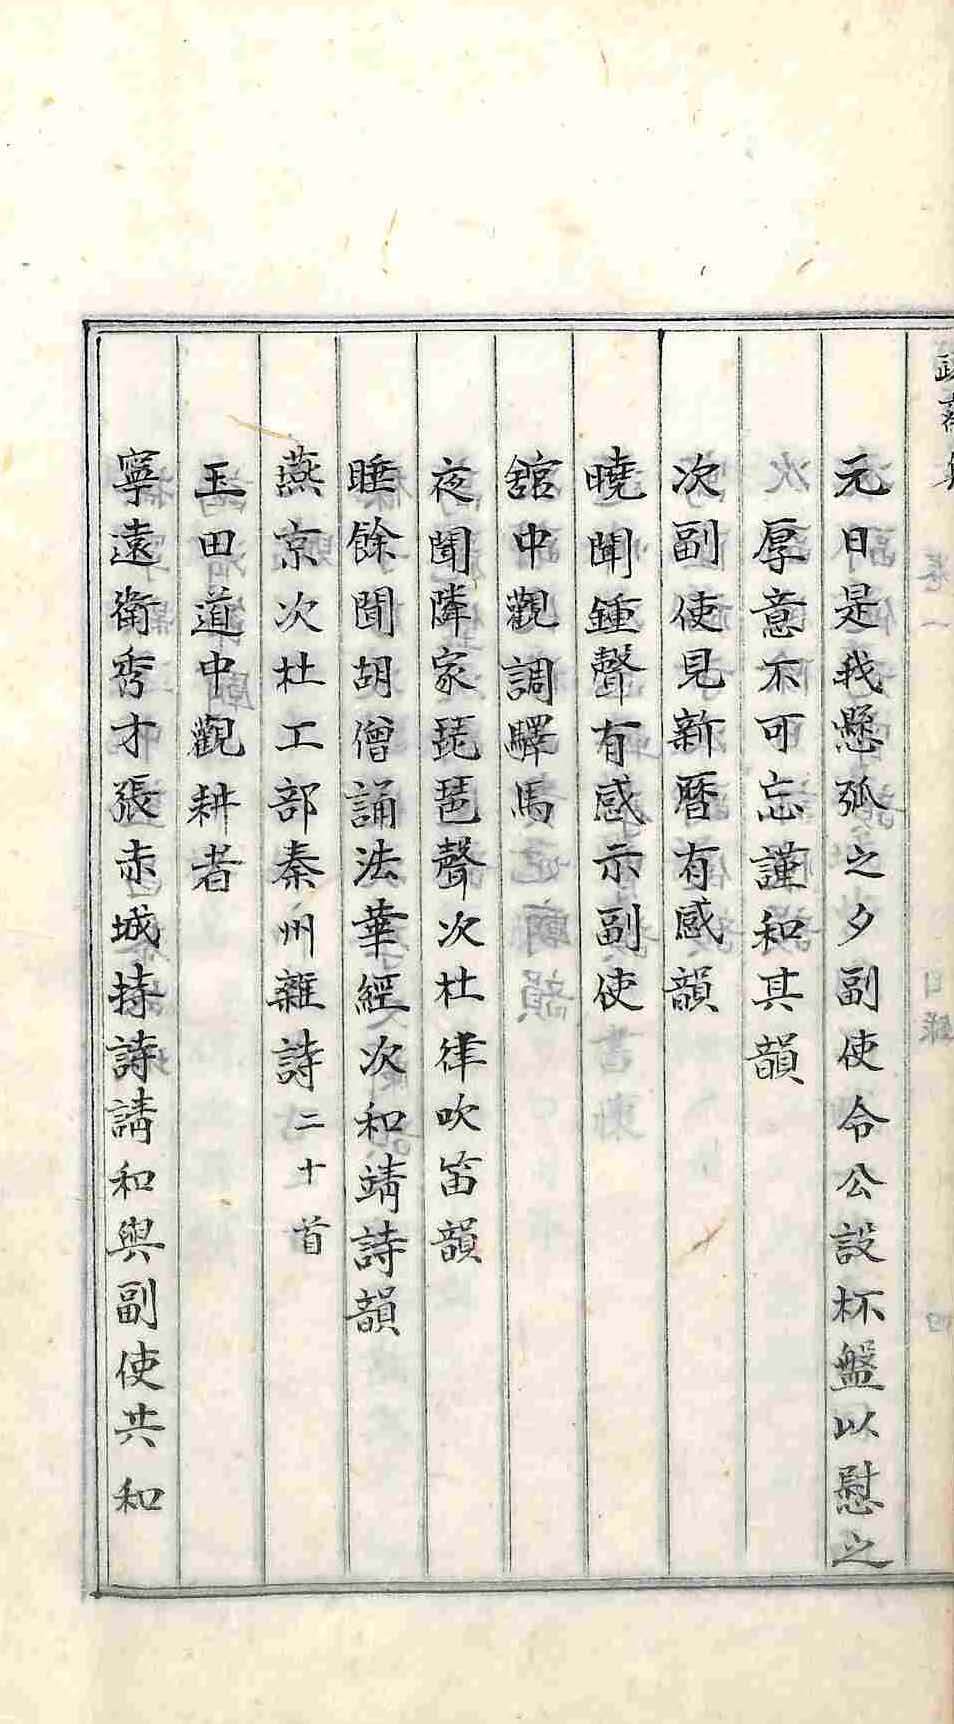 元日是我懸弧之夕副使令公設杯盤以慰之
厚意不可忘謹和其韻
次副使見新曆有感韻
曉聞鍾聲有感示副使
舘中觀調驛馬
夜聞隣家琵琶聲次杜律吹笛韻
睡餘聞胡僧誦法華經次和靖詩韻
燕京次杜工部秦州雜詩二十首
玉田道中觀耕者
寧遠衛秀才張赤城持詩請和與副使共和